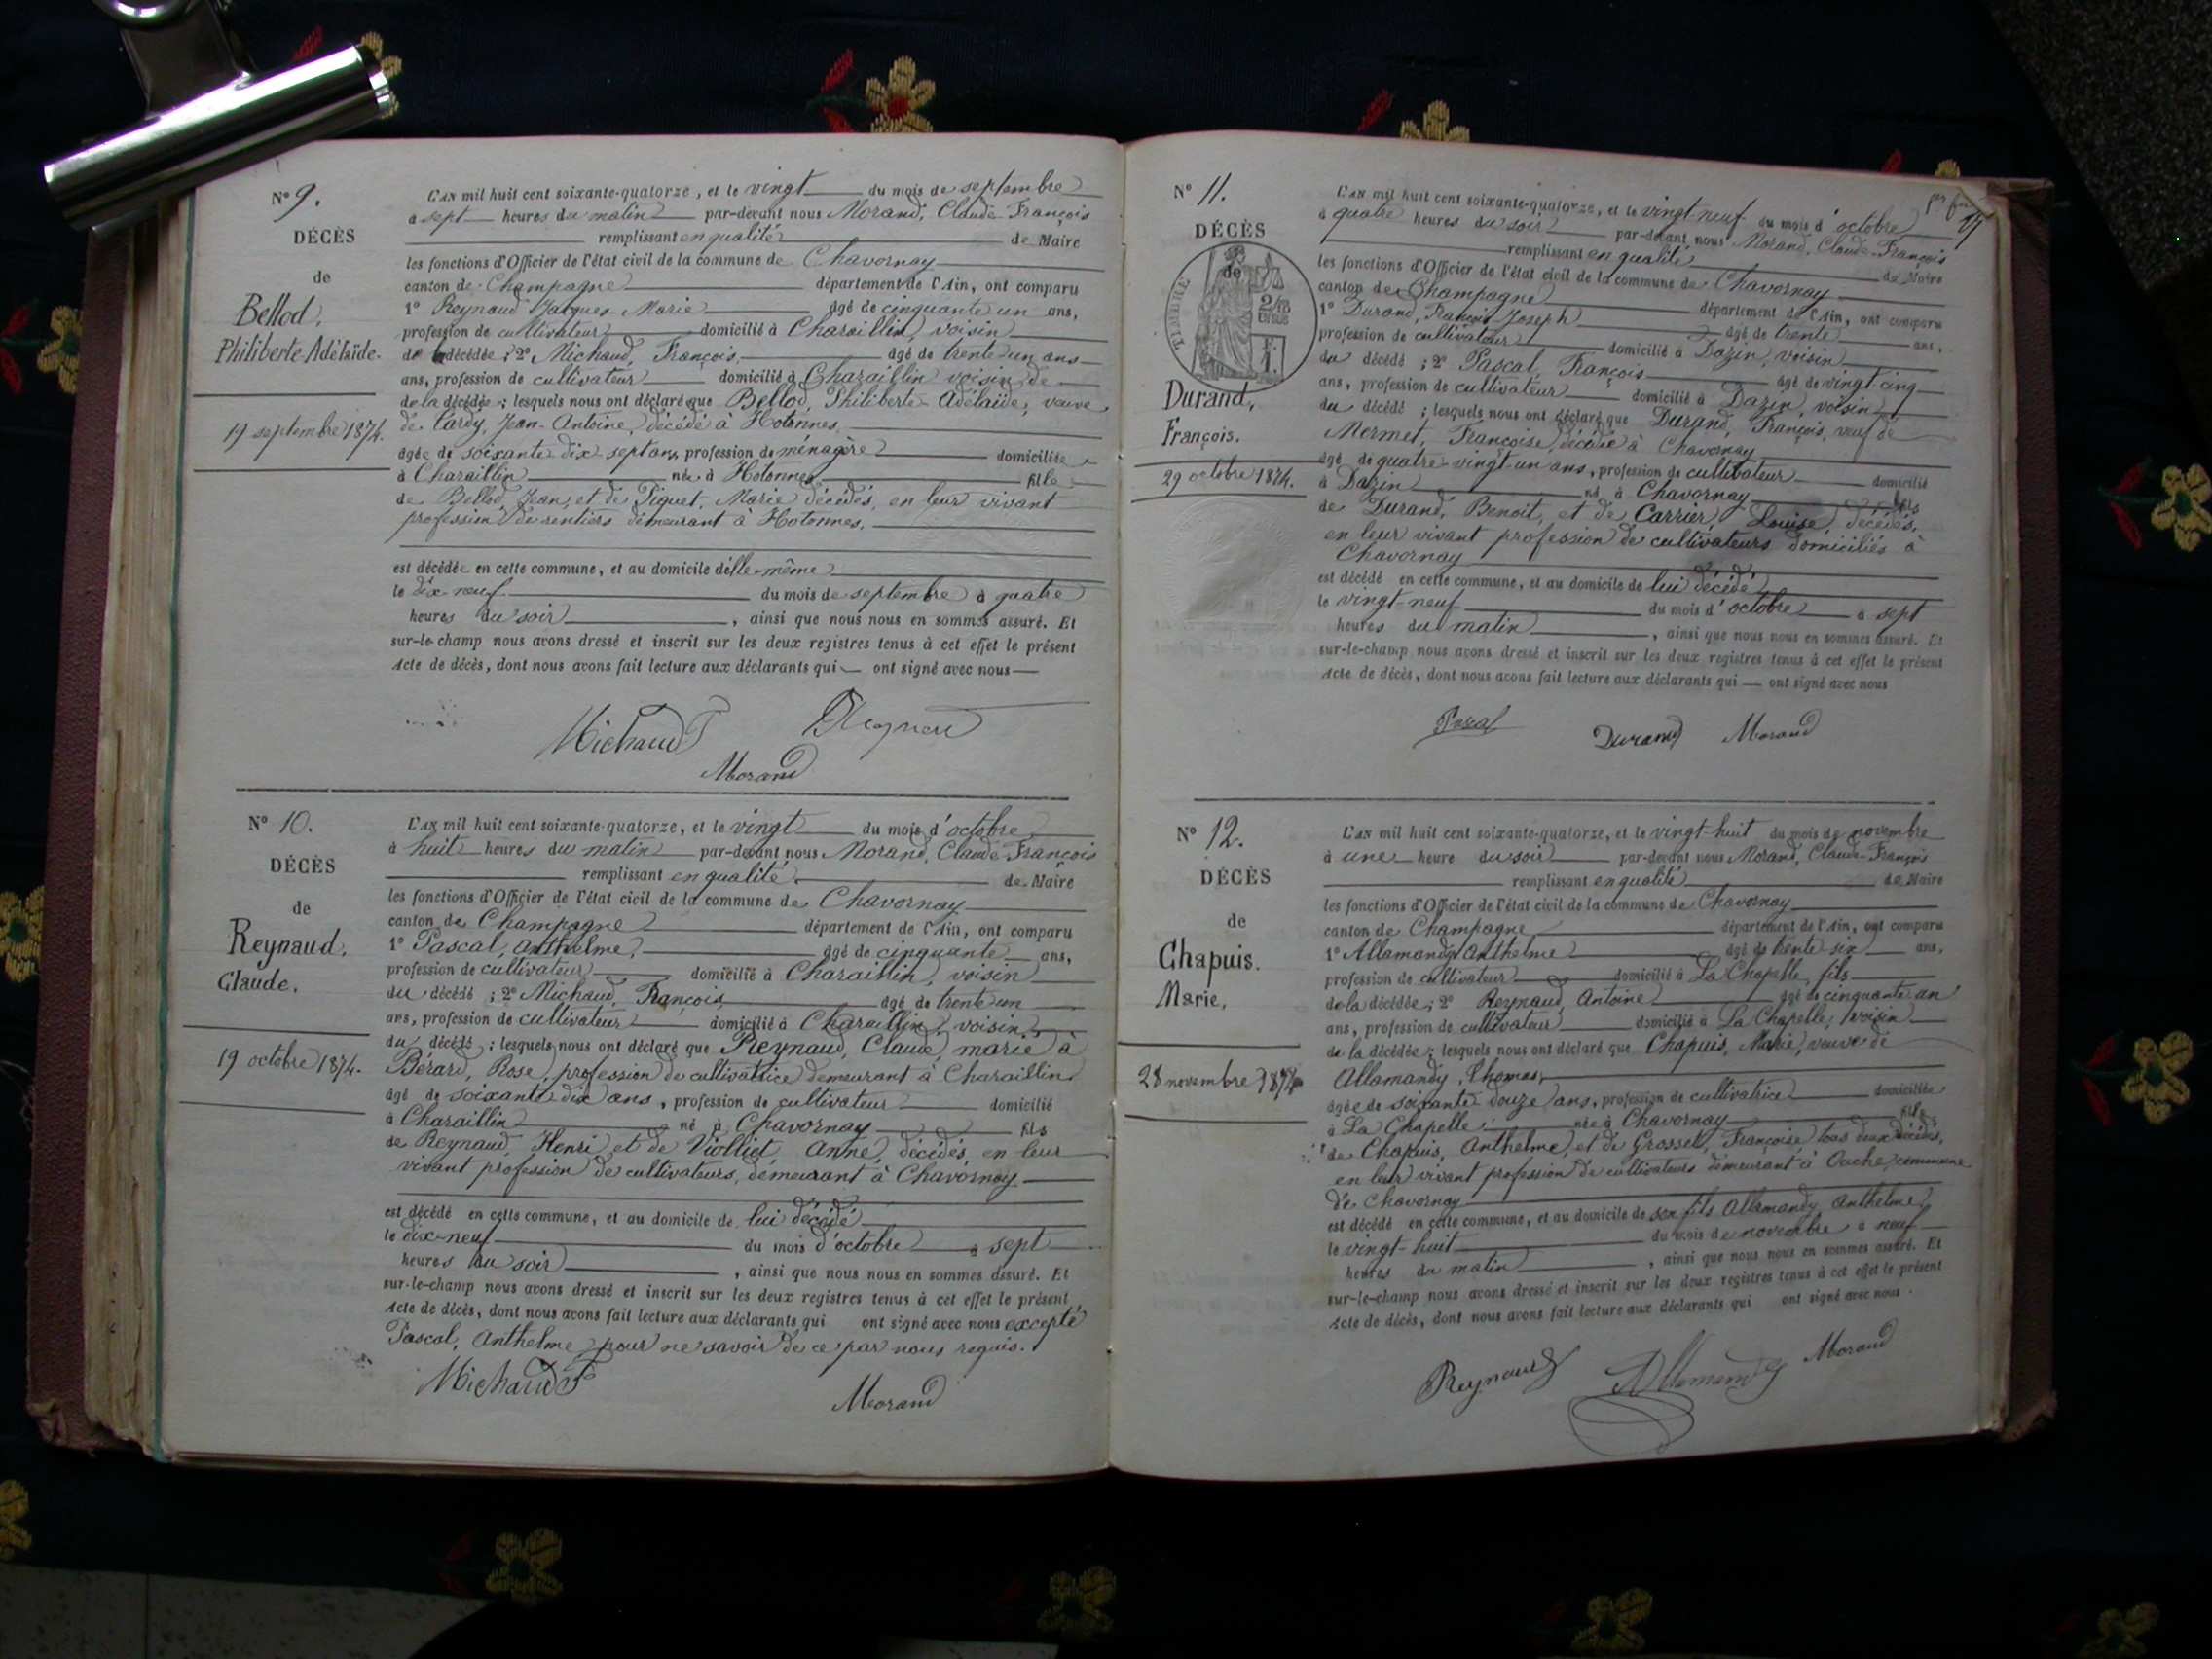 N° 9.
DÉCÈS
de
Bellod,
Philiberte Adélaïde.
19 septembre 1874.
L'AN mil huit cent soixante-quatorze, et le vingt du mois de septembre
à sept heures du matin par-devant nous Morand, Claude François
remplissant en qualité de Maire
les fonctions d'Officier de l'état civil de la commune de Chavornay
canton de Champagne département de l'Ain, ont comparu
1° Reynaud Jacques-Marie âgé de cinquante un ans,
profession de cultivateur domicilié à Charaillin, voisin
de la décédée ; 2° Michaud, François, âgé de trente un ans
ans, profession de cultivateur domicilié à Charaillin voisin de
de la décédée ; lesquels nous ont déclaré que Bellod, Philiberte-Adélaïde, veuve
de Tardy, Jean-Antoine, décédé à Hotonnes,
âgée de soixante dix sept ans, profession de ménagère domiciliée
à Charaillin née à Hotonnes fille
de Bellod, Jean, et de Piguet, Marie décédés, en leur vivant
profession de rentiers demeurant à Hotonnes,
est décédée en cette commune, et au domicile d'elle-même
le dix-neuf du mois de septembre à quatre
heures du soir, ainsi que nous nous en sommes assuré. Et
sur-le-champ nous avons dressé et inscrit sur les deux registres tenus à cet effet le présent
Acte de décès, dont nous avons fait lecture aux déclarants qui ont signé avec nous
Michaud F
Morand
N° 10.
DÉCÈS
de
Reynaud,
Claude.
19 octobre 1874.
L'AN mil huit cent soixante-quatorze, et le vingt du mois d'octobre
à huit heures du matin par-devant nous Morand, Claude François
remplissant en qualité de Maire
les fonctions d'Officier de l'état civil de la commune de Chavornay
canton de Champagne département de l'Ain, ont comparu
1° Pascal, Anthelme, âgé de cinquante ans,
profession de cultivateur domicilié à Charaillin, voisin
du décédé ; 2° Michaud, François âgé de trente un
ans, profession de cultivateur domicilié à Charaillin, voisin
du décédé ; lesquels nous ont déclaré que Reynaud, Claude, marié à
Bérard, Rose, profession de cultivatrice demeurant à Charaillin
âgé de soixante dix ans, profession de cultivateur domicilié
à Charaillin né à Chavornay fils
de Reynaud, Henri et de Violliet Anne, décédés, en leur
vivant profession de cultivateurs, demeurant à Chavornay
est décédé en cette commune, et au domicile de lui décédé
le dix-neuf du mois d'octobre à sept
heures du soir, ainsi que nous nous en sommes assuré. Et
sur-le-champ nous avons dressé et inscrit sur les deux registres tenus à cet effet le présent
Acte de décès, dont nous avons fait lecture aux déclarants qui ont signé avec nous excepté
Pascal, Anthelme pour ne savoir de ce par nous requis.
Michaud F
Morand
17
N° 11.
DÉCÈS
de
TIMBRE
Durand,
François.
29 octobre 1874.
L'AN mil huit cent soixante-quatorze, et le vingt-neuf du mois d'octobre
à quatre heures du soir par-devant nous Morand, Claude-François
remplissant en qualité de Maire
les fonctions d'Officier de l'état civil de la commune de Chavornay
canton de Champagne département de l'Ain, ont comparu
1° Durand, François Joseph âgé de trente ans,
profession de cultivateur domicilié à Dazin, voisin
du décédé ; 2° Pascal, François âgé de vingt cinq
ans, profession de cultivateur domicilié à Dazin, voisin
du décédé ; lesquels nous ont déclaré que Durand, François, veuf de
Mermet, Françoise, décédée à Chavornay
âgé de quatre-vingt un ans, profession de cultivateur domicilié
à Dazin né à Chavornay fils
de Durand, Benoit, et de Carrier, Louise, décédés,
en leur vivant profession de cultivateurs domiciliés à
Chavornay
est décédé en cette commune, et au domicile de lui décédé
le vingt-neuf du mois d'octobre à sept
heures du matin, ainsi que nous nous en sommes assuré. Et
sur-le-champ nous avons dressé et inscrit sur les deux registres tenus à cet effet le présent
Acte de décès, dont nous avons fait lecture aux déclarants qui ont signé avec nous
Pascal
Durand Morand
N° 12.
DÉCÈS
de
Chapuis.
Marie,
28 novembre 1874
L'AN mil huit cent soixante-quatorze, et le vingt-huit du mois de novembre
à une heure du soir par-devant nous Morand, Claude-François
remplissant en qualité de Maire
les fonctions d'Officier de l'état civil de la commune de Chavornay
canton de Champagne département de l'Ain, ont comparu
1° Allamandy Anthelme âgé de trente six ans,
profession de cultivateur domicilié à La Chapelle, fils
de la décédée ; 2° Reynaud, Antoine âgé de cinquante an
ans, profession de cultivateur domicilié à La Chapelle, voisin
de la décédée ; lesquels nous ont déclaré que Chapuis, Marie, veuve de
Allamandy, Thomas,
âgée de soixante douze ans, profession de cultivatrice domiciliée
à La Chapelle née à Chavornay fille
de Chapuis, Anthelme, et de Grosset, Françoise, tous deux décédés,
en leur vivant profession de cultivateurs demeurant à Ouche, commune
de Chavornay
est décédé en cette commune, et au domicile de son fils Allamandy, Anthelme,
le vingt-huit du mois de novembre à neuf
heures du matin, ainsi que nous nous en sommes assuré. Et
sur-le-champ nous avons dressé et inscrit sur les deux registres tenus à cet effet le présent
Acte de décès, dont nous avons fait lecture aux déclarants qui ont signé avec nous.
Reynaud Allemandy Morand